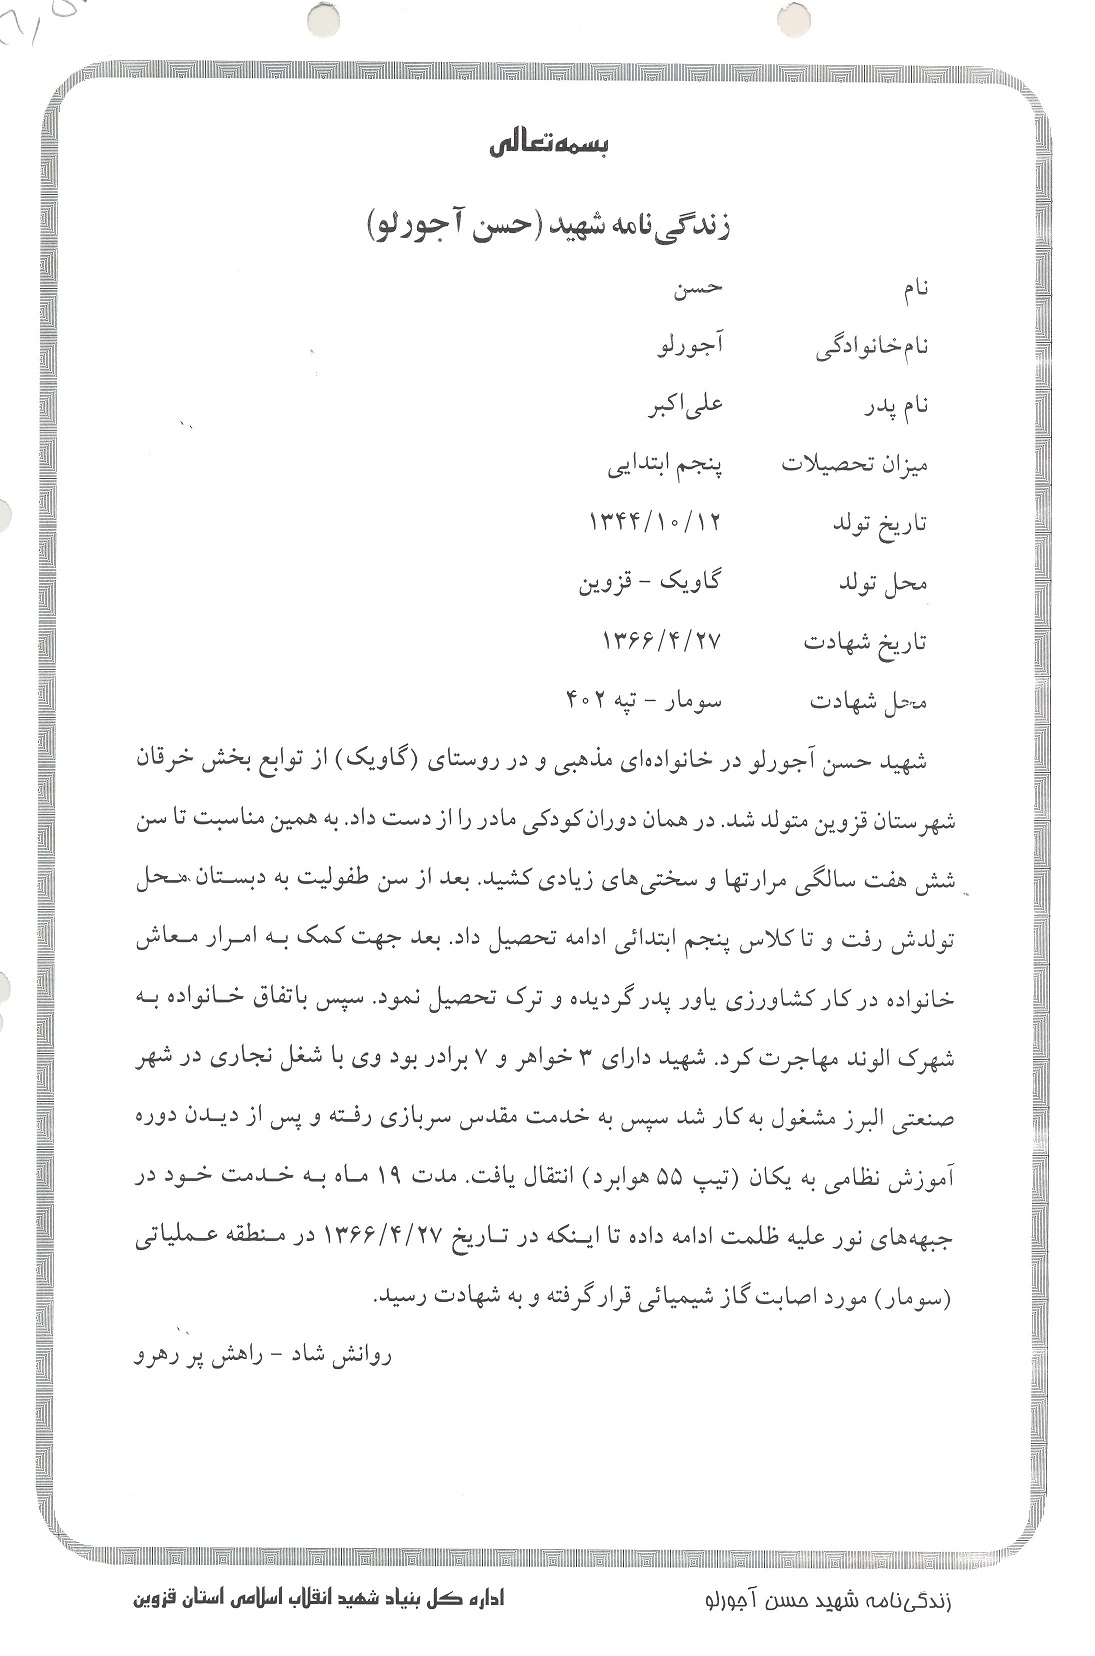 بسمه‌تعالی
زندگی‌نامه شهید (حسن آجورلو)
نام حسن
نام‌خانوادگی آجورلو
نام پدر علی‌اکبر
میزان تحصیلات پنجم ابتدایی
تاریخ تولد ۱۳۴۴/۱۰/۱۲
محل تولد گاویک – قزوین
تاریخ شهادت ۱۳۶۶/۴/۲۷
محل شهادت سومار – تپه ۴۰۲
شهید حسن آجورلو در خانواده‌ای مذهبی و در روستای (گاویک) از توابع بخش خرقان
شهرستان قزوین متولد شد. در همان دوران کودکی مادر را از دست داد. به همین مناسبت تا سن
شش هفت سالگی مرارتها و سختی‌های زیادی کشید. بعد از سن طفولیت به دبستان محل
تولدش رفت و تا کلاس پنجم ابتدائی ادامه تحصیل داد. بعد جهت کمک به امرار معاش
خانواده در کار کشاورزی یاور پدر گردیده و ترک تحصیل نمود. سپس باتفاق خانواده به
شهرک الوند مهاجرت کرد. شهید دارای ۳ خواهر و ۷ برادر بود وی با شغل نجاری در شهر
صنعتی البرز مشغول به کار شد سپس به خدمت مقدس سربازی رفته و پس از دیدن دوره
آموزش نظامی به یکان (تیپ ۵۵ هوابرد) انتقال یافت. مدت ۱۹ ماه به خدمت خود در
جبهه‌های نور علیه ظلمت ادامه داده تا اینکه در تاریخ ۱۳۶۶/۴/۲۷ در منطقه عملیاتی
(سومار) مورد اصابت گاز شیمیائی قرار گرفته و به شهادت رسید.
روانش شاد – راهش پر رهرو
زندگی‌نامه شهید حسن آجورلو اداره کل بنیاد شهید انقلاب اسلامی استان قزوین